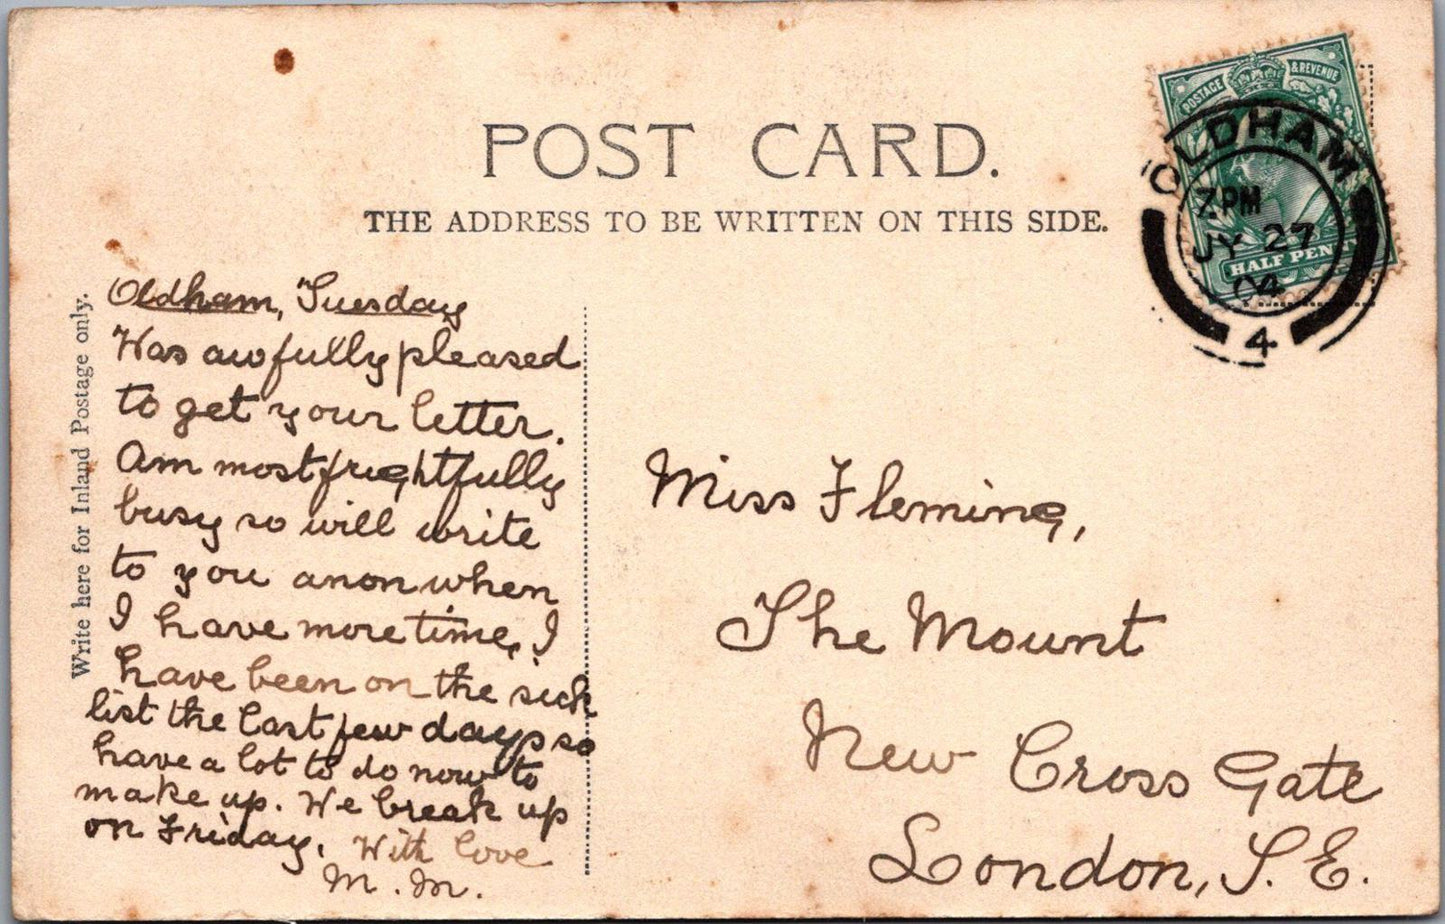 POST CARD.
THE ADDRESS TO BE WRITTEN ON THIS SIDE.
POSTAGE & REVENUE
HALF PENNY
OLDHAM
7.PM
JY 27
04
4
Write here for Inland Postage only.
Oldham, Tuesday
Was awfully pleased
to get your letter.
Am most frightfully
busy so will write
to you anon when
I have more time, I
have been on the sick
list the last few days so
have a lot to do now to
make up. We break up
on Friday. With love
M. M.
Miss Fleming,
The Mount
New Cross Gate
London, S.E.